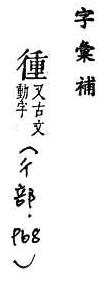 字彙補
徸又古文動字(彳部·P68)